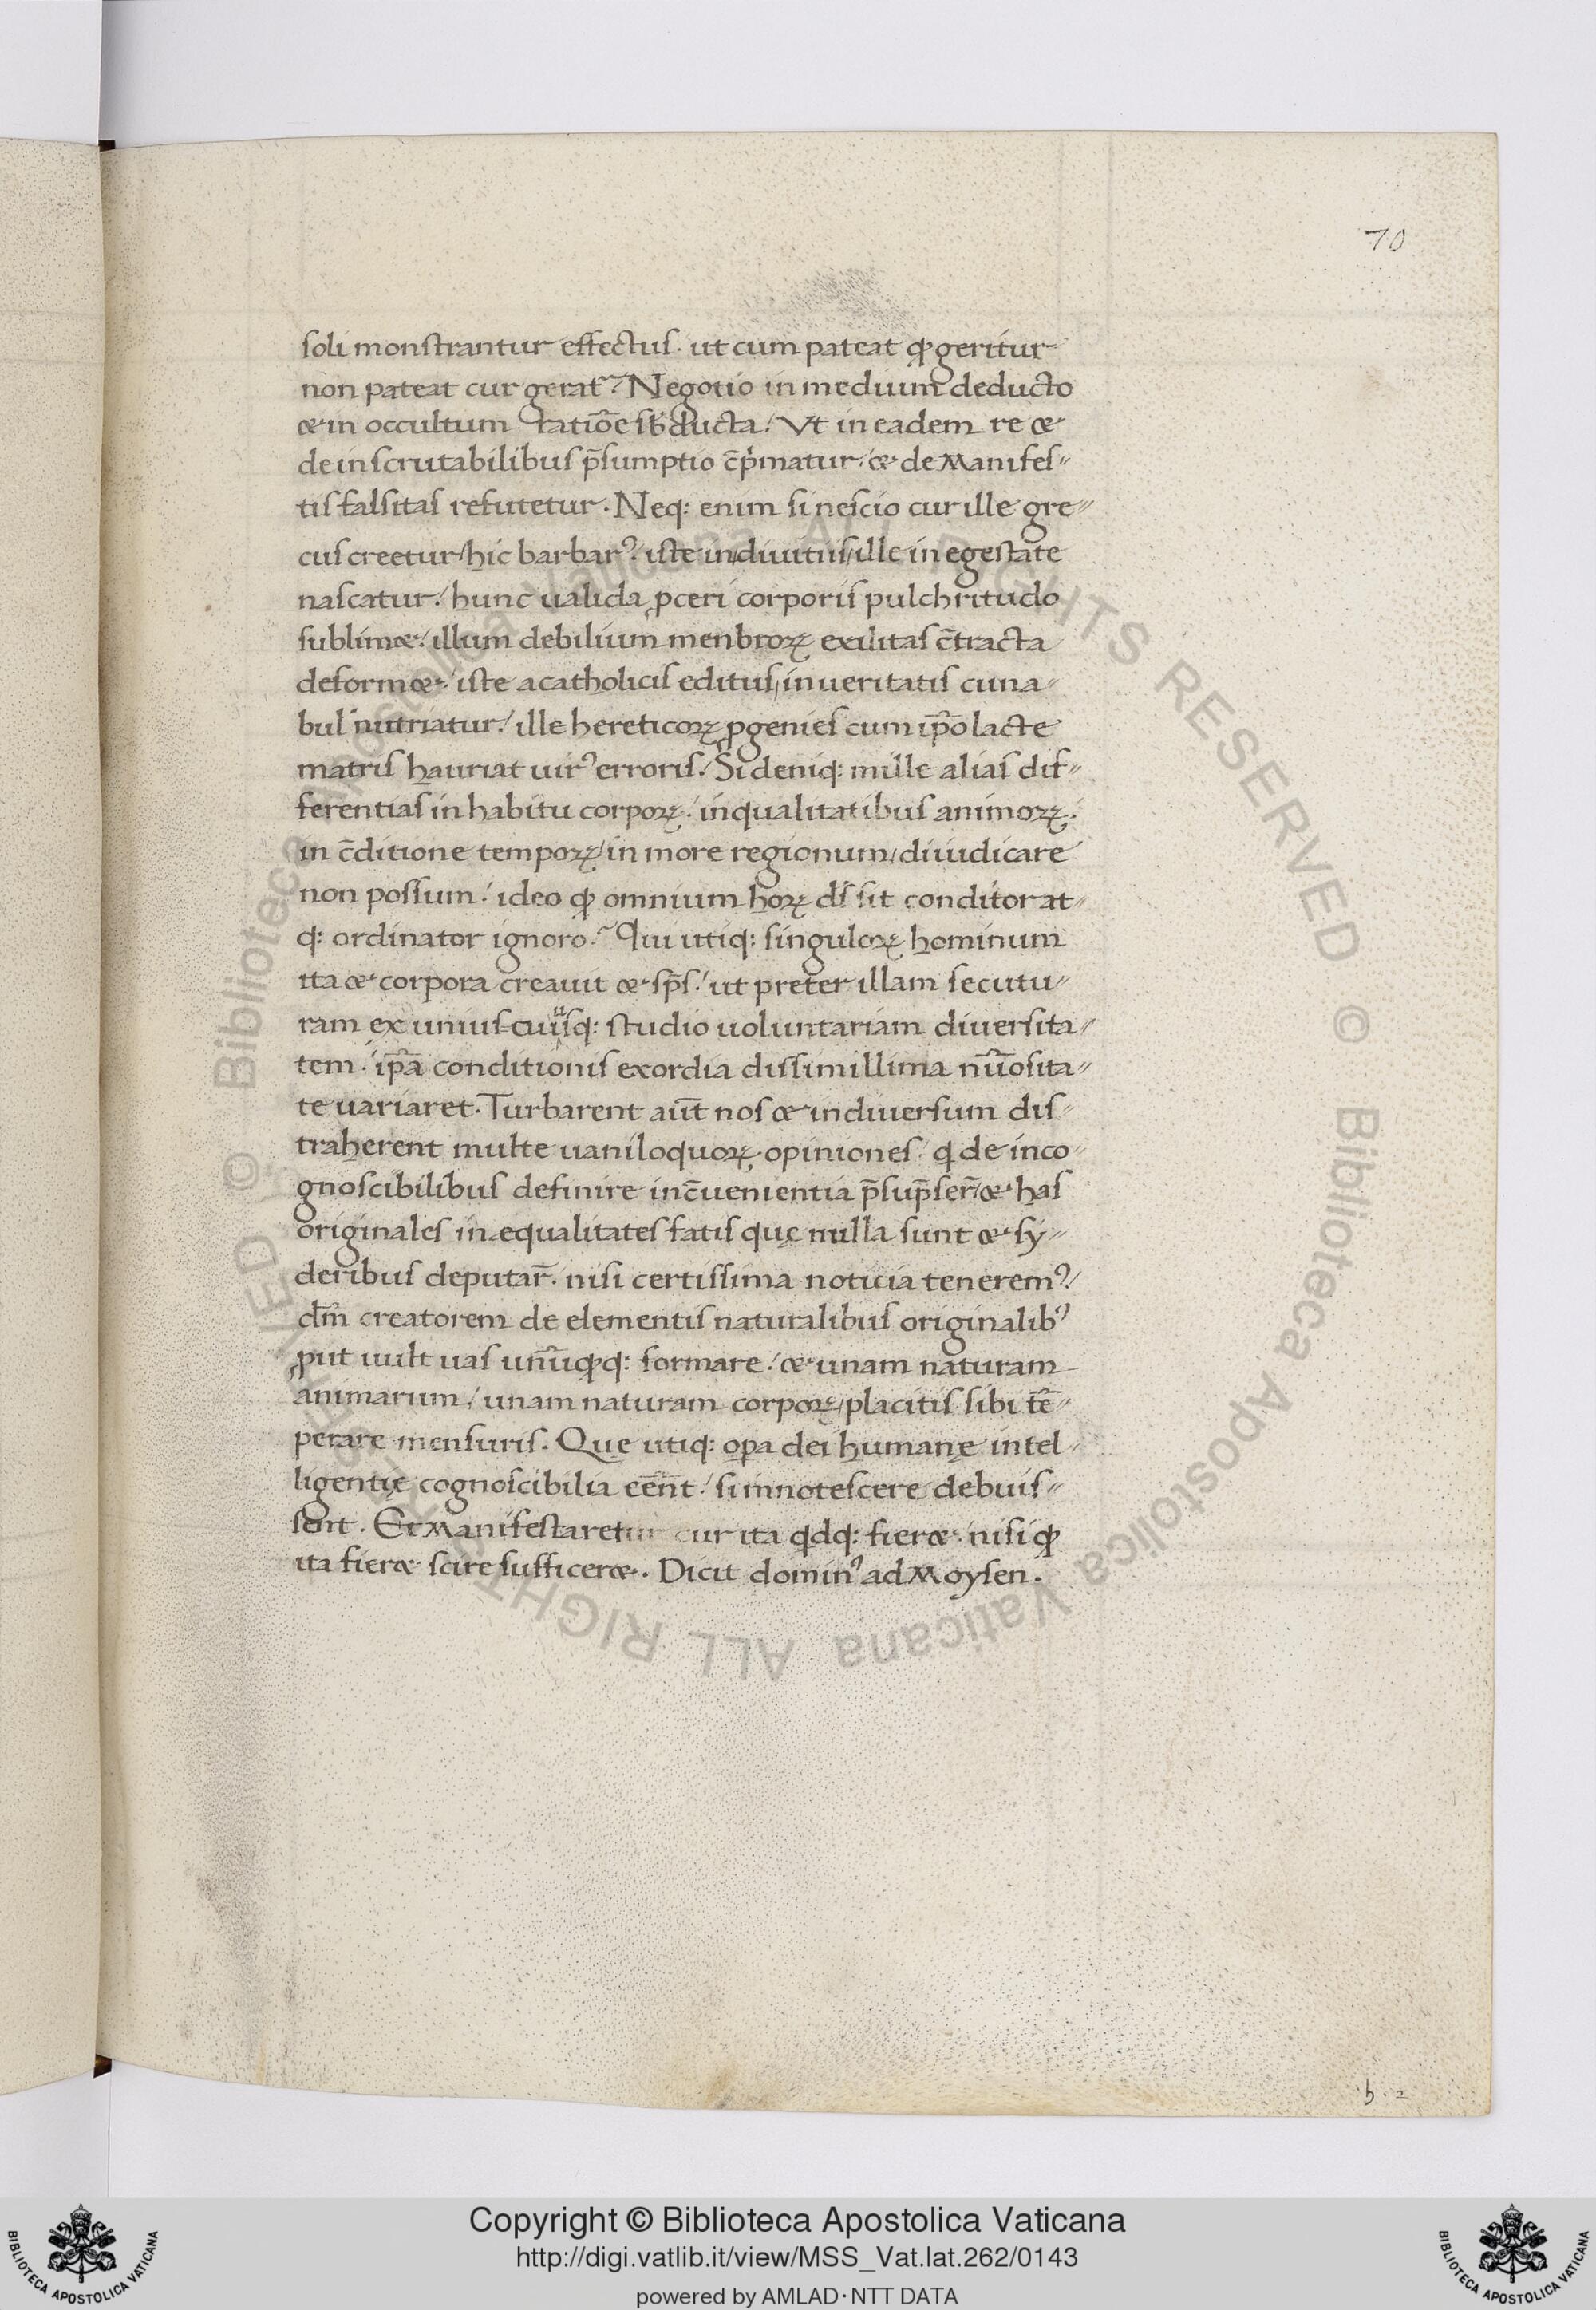 70
soli monstrantur effectus· ut cum pateat ꝙ geritur
non pateat cur gerat᷑? Negotio in medium deducto
& in occultum ratiōe sb̾ducta / Vt in eadem re &
de inscrutabilibus p̄sumptio c̄pͥmatur / & de manifes-
tis falsitas refutetur· Neq: enim si nescio cur ille gre-
cus creetur / hic barbarꝰ· iste in diuitiis / ille in egestate
nascatur / hunc ualida ꝓceri corporis pulchritudo
sublim& / illum debilium menbroꝝ exilitas c̄tracta
deform& / iste a catholicis editus, in ueritatis cuna
bul' nutriatur / ille hereticoꝝ ꝓgenies cum ip̄o lacte
matris hauriat uirꝰ erroris / Si deniq: mille alias dif-
ferentias in habitu corpoꝝ / in qualitatibus animoꝝ·
in c̄ditione tempoꝝ / in more regionum / diiudicare
non possum / ideo ꝙ omnium hoꝝ ds̄ sit conditor at-
q: ordinator ignoro? Qui utiq: singuloꝝ hominum
ita & corpora creauit & sp̄s / ut preter illam secutu-
ram ex unius cuiusq: studio uoluntariam diuersita-
tem· ip̄a conditionis exordia dissimillima nūosita-
te uariaret· Turbarent aūt nos & in diuersum dis-
traherent multe uaniloquoꝝ opiniones / q de inco-
gnoscibilibus definire inc̄uenientia p̄sup̄ser̄ & has
originales in equalitates fatis quę nulla sunt & sy-
deribus deputar̄· nisi certissima noticia teneremꝰ /
dm̄ creatorem de elementis naturalibus originalibꝰ
ꝓut uult uas unūꝙq: formare / & unam naturam
animarum / unam naturam corpoꝝ / placitis sibi tē-
perare mensuris· Que utiq: oꝑa dei humanę intel-
ligentię cognoscibilia eēnt / si innotescere debuis-
sent· Et manifestaretur cur ita qdq: fier& · nisi ꝙ
ita fier& scire suffícer&· Dicit dominꝰ ad Moysen·
b · 2
Biblioteca Apostolica Vaticana ALL RIGHTS RESERVED ©
Copyright © Biblioteca Apostolica Vaticana
http://digi.vatlib.it/view/MSS_Vat.lat.262/0143
powered by AMLAD·NTT DATA
BIBLIOTECA APOSTOLICA VATICANA
BIBLIOTECA APOSTOLICA VATICANA